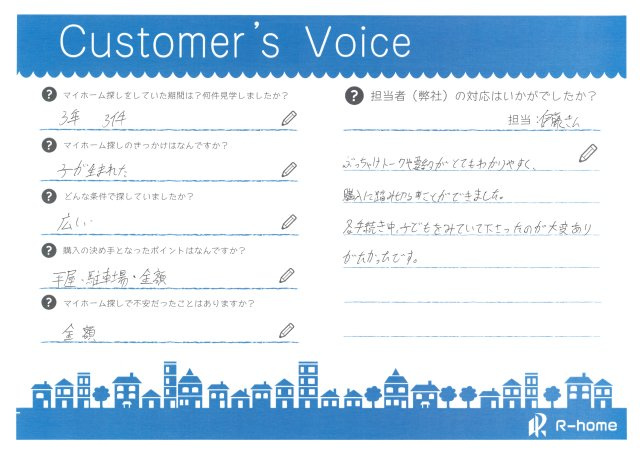 Customer's Voice
? マイホーム探しをしていた期間は？何件見学しましたか？
3年 3件
? マイホーム探しのきっかけはなんですか？
子が生まれた
? どんな条件で探していましたか？
広い
? 購入の決め手となったポイントはなんですか？
平屋・駐車場・金額
? マイホーム探しで不安だったことはありますか？
金額
? 担当者（弊社）の対応はいかがでしたか？
担当：佐藤さん
ぶっちゃけトークや要約がとてもわかりやすく、
購入に踏み切る事ことができました。
各手続き中、子どもをみていて下さったのが大変あり
がたかったです。
R-home